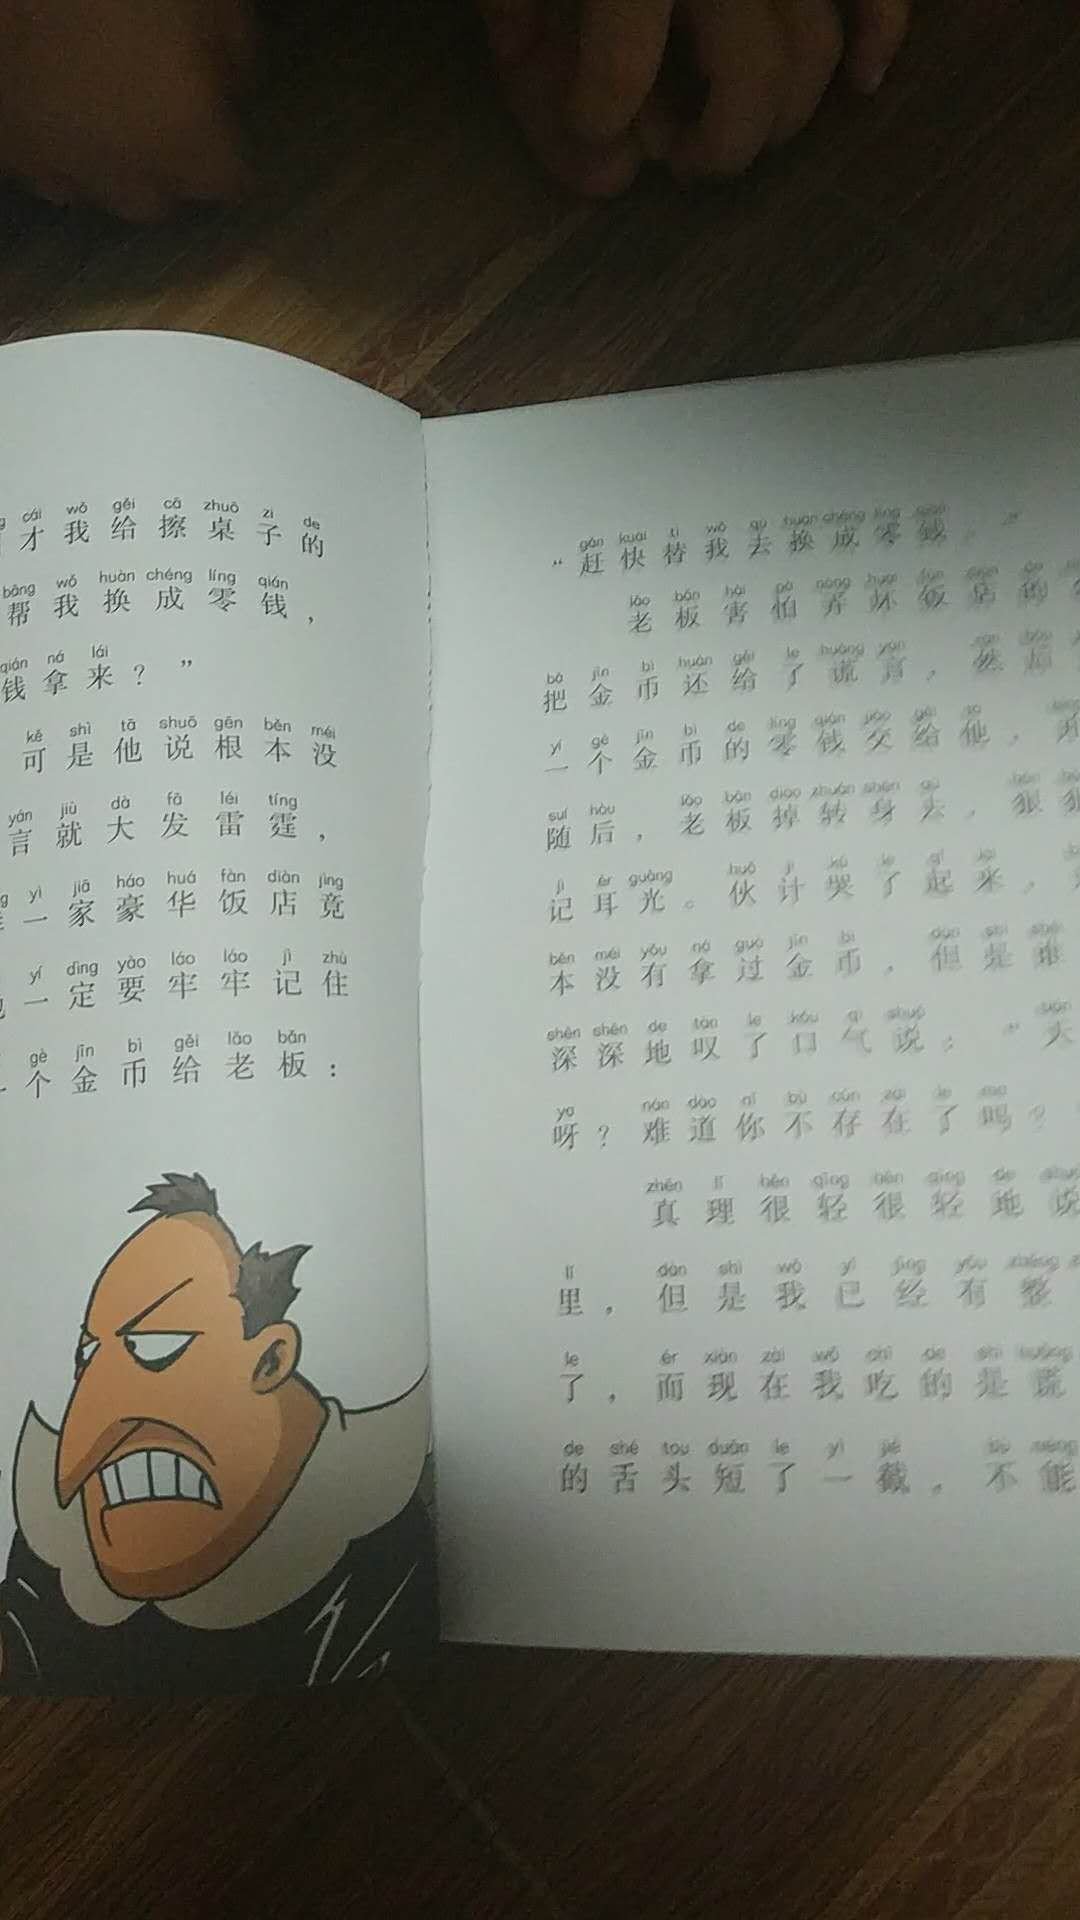 才我给擦桌子的
帮我换成零钱，
钱拿来？”
可是他说根本没
言就大发雷霆，
一家豪华饭店竟
一定要牢牢记住
个金币给老板：
“赶快替我去换成零钱。”
老板害怕弄坏饭店的
把金币还给了谎言，然后
一个金币的零钱交给他，
随后，老板掉转身去，狠狠
记耳光。伙计哭了起来，
本没有拿过金币，但是谁
深深地叹了口气说：“天
呀？难道你不存在了吗？
真理很轻很轻地说
里，但是我已经有整
了，而现在我吃的是谎
的舌头短了一截，不能